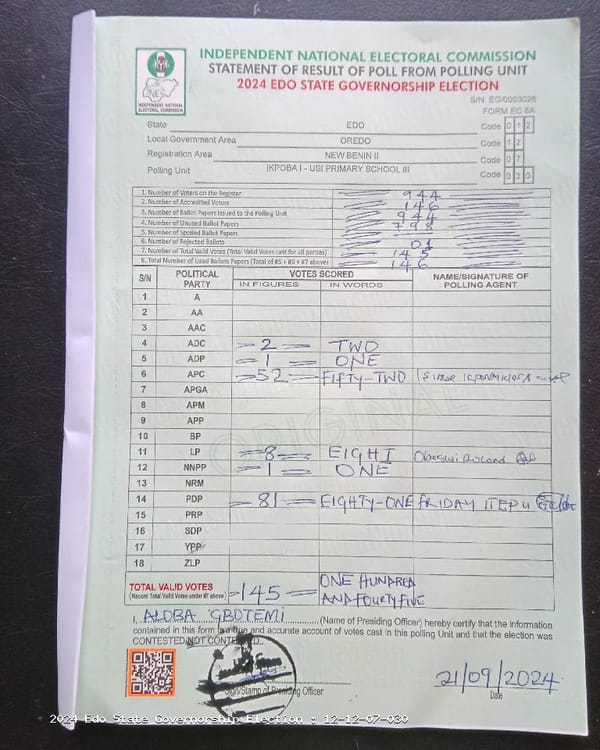 INDEPENDENT NATIONAL ELECTORAL COMMISSION
STATEMENT OF RESULT OF POLL FROM POLLING UNIT
2024 EDO STATE GOVERNORSHIP ELECTION
INEC
INDEPENDENT NATIONAL ELECTORAL COMMISSION
S/N: EG/0003026
FORM EC 8A
State EDO Code 0 1 2
Local Government Area OREDO Code 1 2
Registration Area NEW BENIN II Code 0 7
Polling Unit IKPOBA I - USI PRIMARY SCHOOL III Code 0 3 0
1. Number of Voters on the Register 944
2. Number of Accredited Voters 146
3. Number of Ballot Papers Issued to the Polling Unit 944
4. Number of Unused Ballot Papers 798
5. Number of Spoiled Ballot Papers
6. Number of Rejected Ballots 01
7. Number of Total Valid Votes (Total Valid Votes cast for all parties) 145
8. Total Number of Used Ballot Papers (Total of #5 + #6 + #7 above) 146
S/N POLITICAL PARTY VOTES SCORED NAME/SIGNATURE OF POLLING AGENT
IN FIGURES IN WORDS
1 A
2 AA
3 AAC
4 ADC =2= TWO
5 ADP =1= ONE
6 APC =52= FIFTY-TWO
7 APGA
8 APM
9 APP
10 BP
11 LP =8= EIGHT
12 NNPP =1= ONE
13 NRM
14 PDP =81= EIGHTY-ONE FRIDAY ITEPU
15 PRP
16 SDP
17 YPP
18 ZLP
ORIGINAL
TOTAL VALID VOTES =145= ONE HUNDREA
(Record Total Valid Votes under #7 above) AND FOURTY FIVE
I, ALOBA GBOTEMI (Name of Presiding Officer) hereby certify that the information
contained in this form is a true and accurate account of votes cast in this polling Unit and that the election was
CONTESTED/NOT CONTESTED.
Sign/Stamp of Presiding Officer
21/09/2024
Date
2024 Edo State Governorship Election : 12-12-07-030